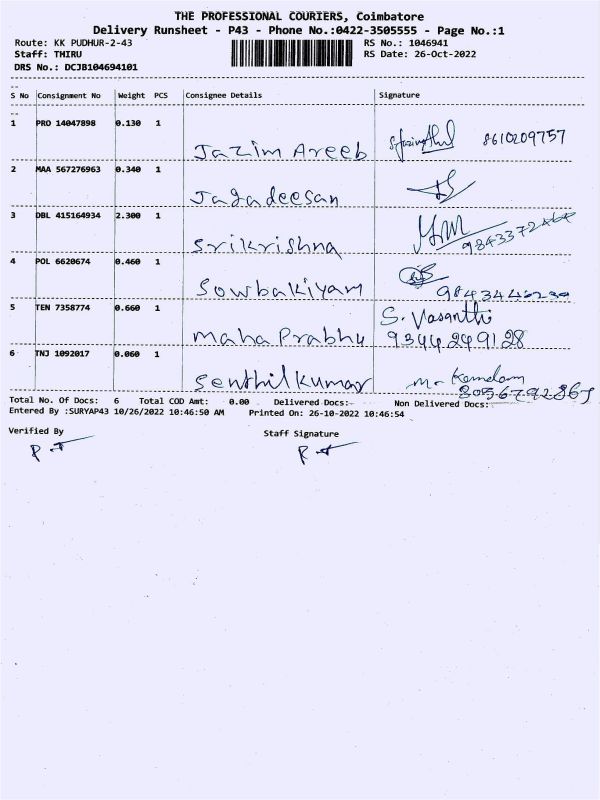 THE PROFESSIONAL COURIERS, Coimbatore
Delivery Runsheet - P43 - Phone No.:0422-3505555 - Page No.:1
Route: KK PUDHUR-2-43 RS No.: 1046941
Staff: THIRU RS Date: 26-Oct-2022
DRS No.: DCJB104694101
S No Consignment No Weight PCS Consignee Details Signature
1 PRO 14047898 0.130 1
Jazim Areeb 8610209757
2 MAA 567276963 0.340 1
Jagadeesan
3 DBL 415164934 2.300 1
Srikrishna
4 POL 6620674 0.460 1
Sowbakiyam
5 TEN 7358774 0.660 1 S. Vasanthi
Maha Prabhu 9344249128
6 TNJ 1092017 0.060 1
Senthilkumar
Total No. Of Docs: 6 Total COD Amt: 0.00 Delivered Docs:- Non Delivered Docs:
Entered By :SURYAP43 10/26/2022 10:46:50 AM Printed On: 26-10-2022 10:46:54
Verified By Staff Signature